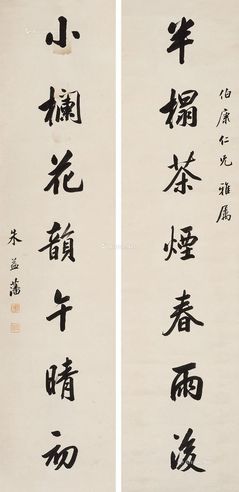 伯康仁兄雅属
半榻茶煙春雨後
小欄花韻午晴初
朱益藩